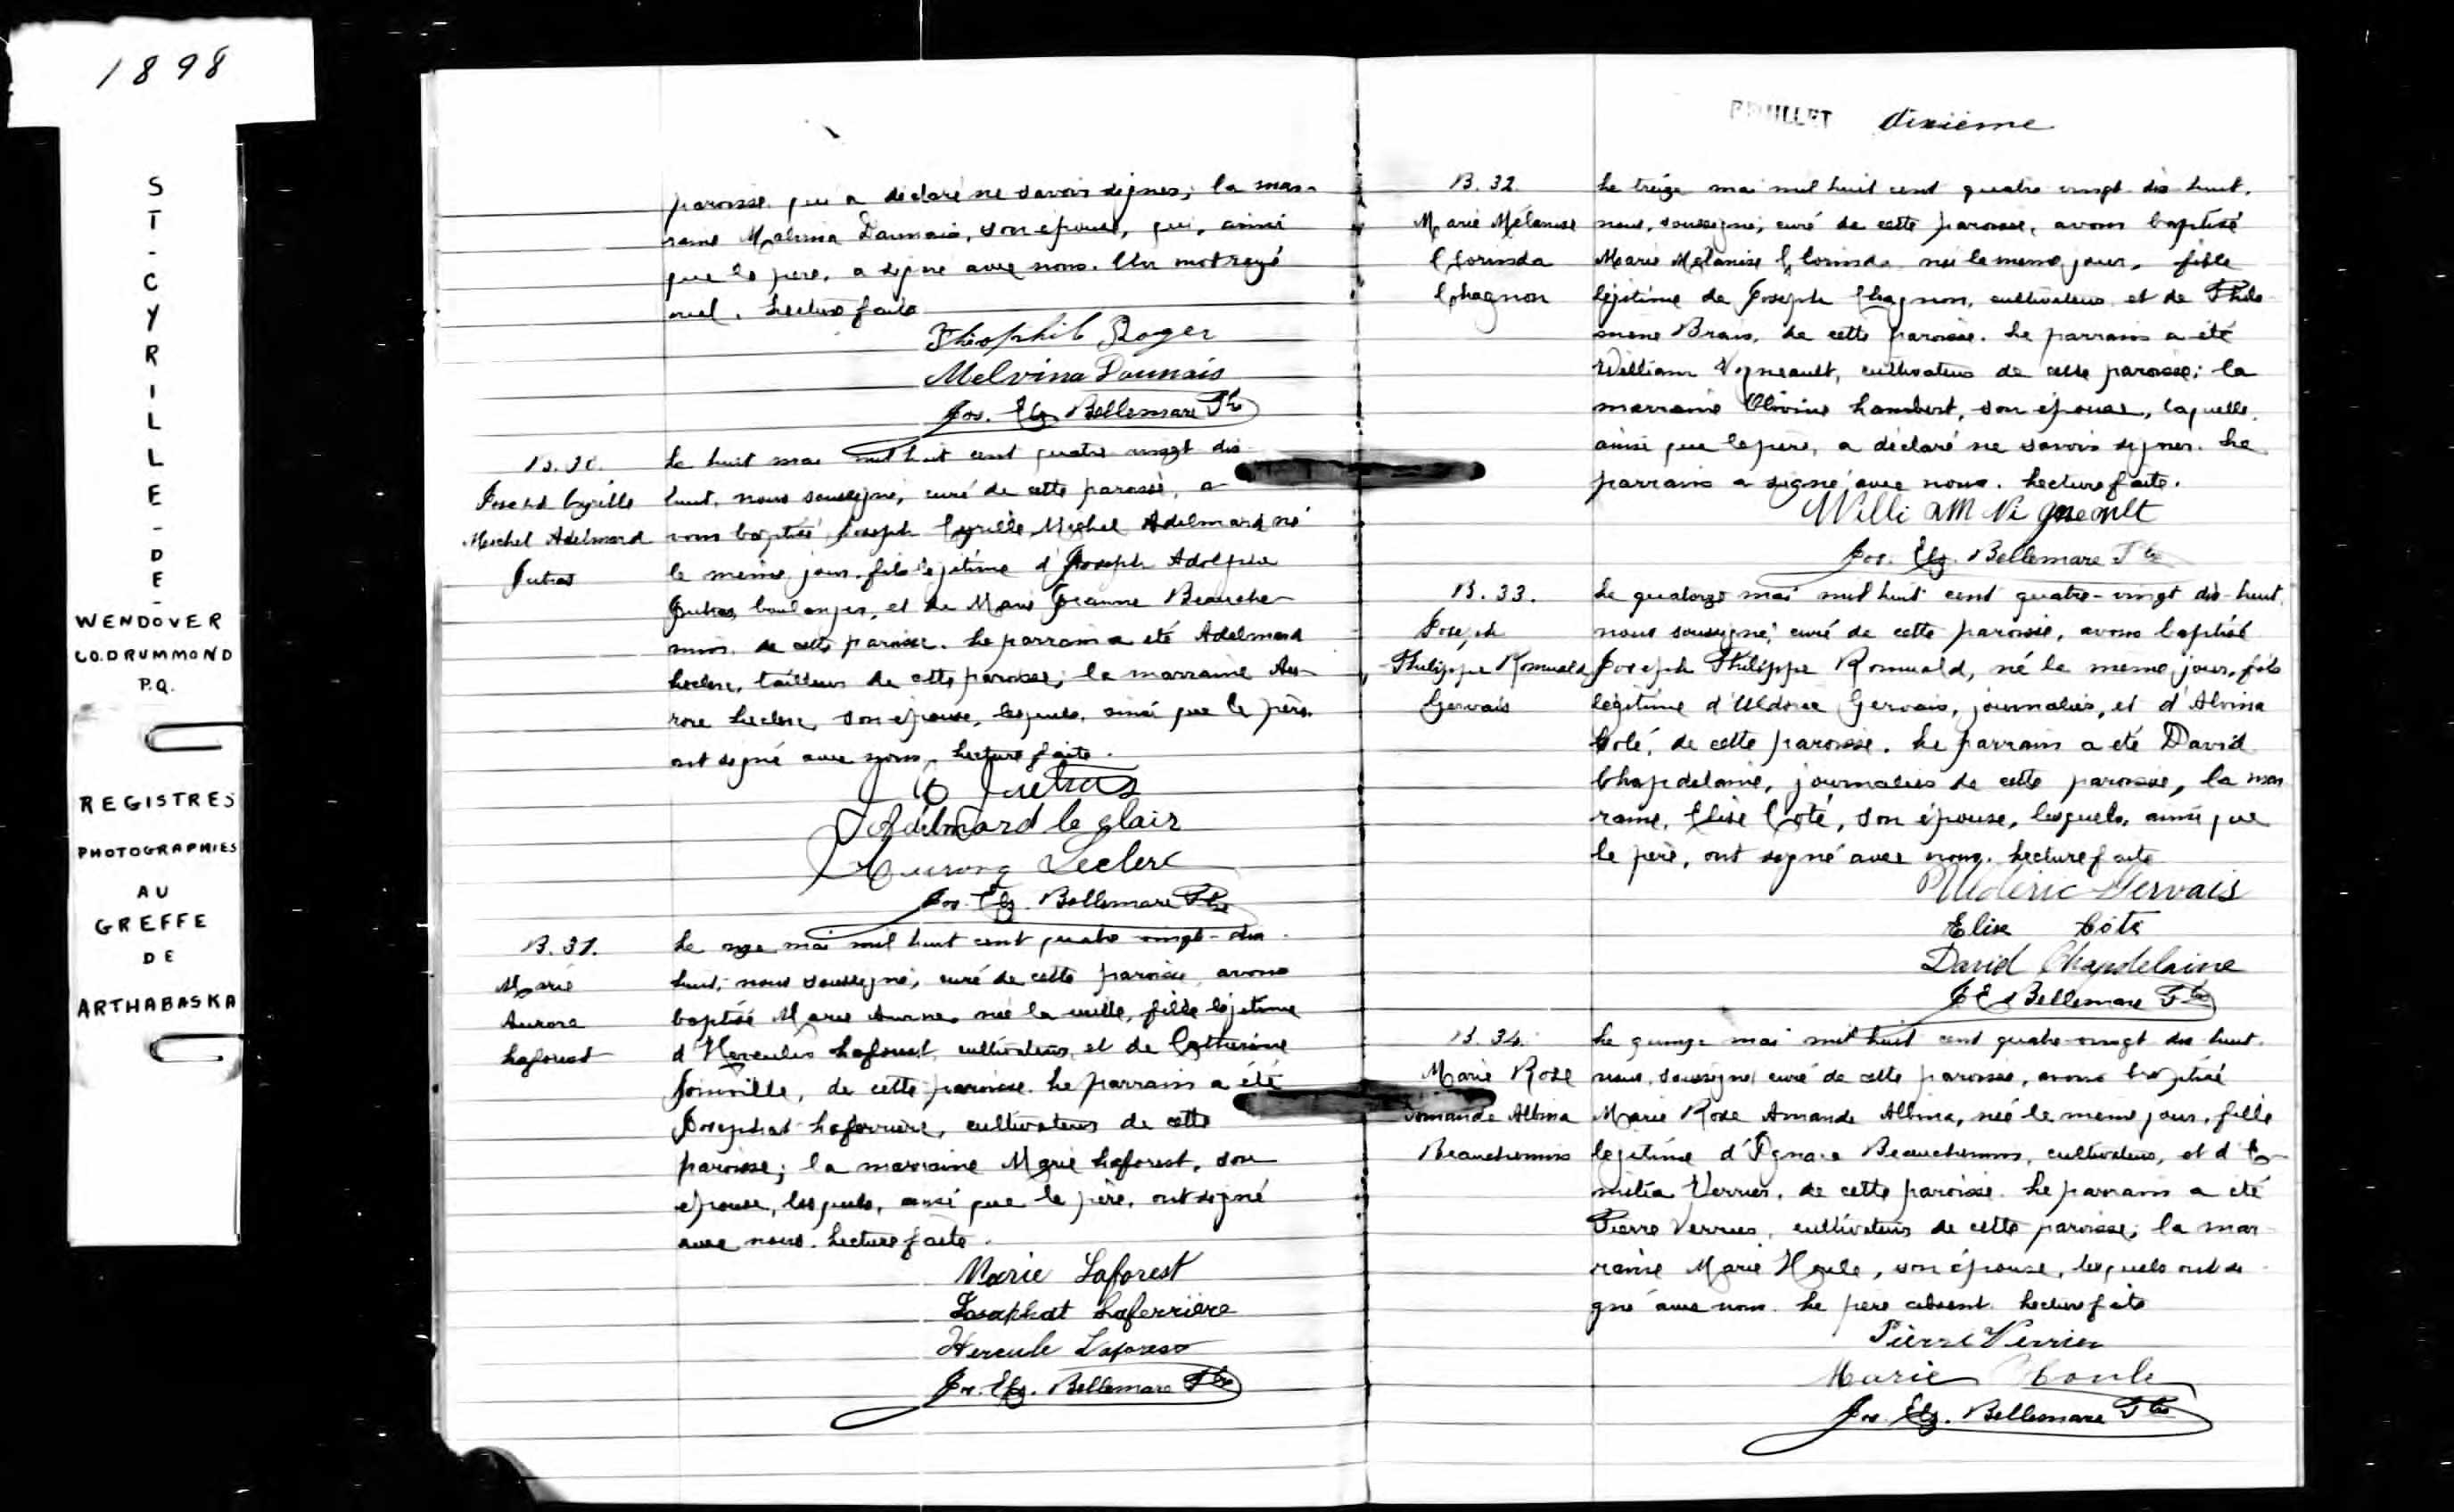 1898
ST-CYRILLE-DE-
WENDOVER
CO. DRUMMOND
P.Q.
REGISTRES
PHOTOGRAPHIES
AU
GREFFE
DE
ARTHABASKA
paroisse qui a déclaré ne savoir signer; la mar-
raine Malvina Daunais, son épouse, qui, ainsi
que le père, a signé avec nous. Un mot rayé
nul. Lecture faite
Théophile Roger
Melvina Daunais
Jos. Elz. Bellemare Ptre
B. 30.
Joseph Cyrille
Michel Adelmard
Jutras
Le huit mai mil huit cent quatre vingt dix
huit, nous soussigné, curé de cette paroisse, a-
vons baptisé Joseph Cyrille Michel Adelmard né
le même jour, fils légitime d'Joseph Adolphe
Jutras, boulanger, et de Marie Jeanne Beauche-
min, de cette paroisse. Le parrain a été Adelmard
Leclerc, tailleur de cette paroisse; la marraine Au-
rore Leclerc, son épouse, lesquels, ainsi que le père
ont signé avec nous. Lecture faite.
Jutras
Adelmard le clair
Leclerc
Jos. Elz. Bellemare Ptre
B. 31.
Marie
Aurore
Laforest
Le onze mai mil huit cent quatre vingt-dix-
huit, nous soussigné, curé de cette paroisse avons
baptisé Marie Aurore, née la veille, fille légitime
d'Hercules Laforest, cultivateur, et de Catherine
Joinville, de cette paroisse. Le parrain a été
Josephat Laferrière, cultivateur de cette
paroisse; la marraine Marie Laforest, son
épouse, lesquels, ainsi que le père, ont signé
avec nous. Lecture faite.
Marie Laforest
Josaphat Laferrière
Hercule Laforest
Jos. Elz. Bellemare Ptre
FEUILLET dixième
B. 32.
Marie Mélanise
Clorinda
Chagnon
Le treize mai mil huit cent quatre vingt dix huit,
nous, soussigné, curé de cette paroisse, avons baptisé
Marie Mélanise Clorinda née le même jour, fille
légitime de Joseph Chagnon, cultivateur et de Philo-
mène Brais, de cette paroisse. Le parrain a été
William Vigneault, cultivateur de cette paroisse; la
marraine Olivine Lambert, son épouse, laquelle,
ainsi que le père, a déclaré ne savoir signer. Le
parrain a signé avec nous. Lecture faite.
William Vigneault
Jos. Elz. Bellemare Ptre
B. 33.
Joseph
Philippe Romuald
Gervais
Le quatorze mai mil huit cent quatre-vingt dix-huit,
nous soussigné, curé de cette paroisse, avons baptisé
Joseph Philippe Romuald, né le même jour, fils
légitime d'Uldoric Gervais, journalier, et d'Alvina
Coté, de cette paroisse. Le parrain a été David
Chapdelaine, journalier de cette paroisse, la mar
raine, Elise Coté, son épouse, lesquels, ainsi que
le père, ont signé avec nous. Lecture faite
Gervais
Elise Coté
David Chapdelaine
J E Bellemare Ptre
B. 34.
Marie Rose
Amande Albina
Beauchemin
Le quinze mai mil huit cent quatre-vingt dix-huit,
nous, soussigné curé de cette paroisse, avons baptisé
Marie Rose Amande Albina, née le même jour, fille
légitime d'Ignace Beauchemin, cultivateur, et d'E-
mélia Verrier, de cette paroisse. Le parrain a été
Pierre Verrier, cultivateur de cette paroisse; la mar-
raine Marie Houle, son épouse, lesquels ont si-
gné avec nous. Le père absent. Lecture faite
Pierre Verrier
Marie Houle
Jos. Elz. Bellemare Ptre